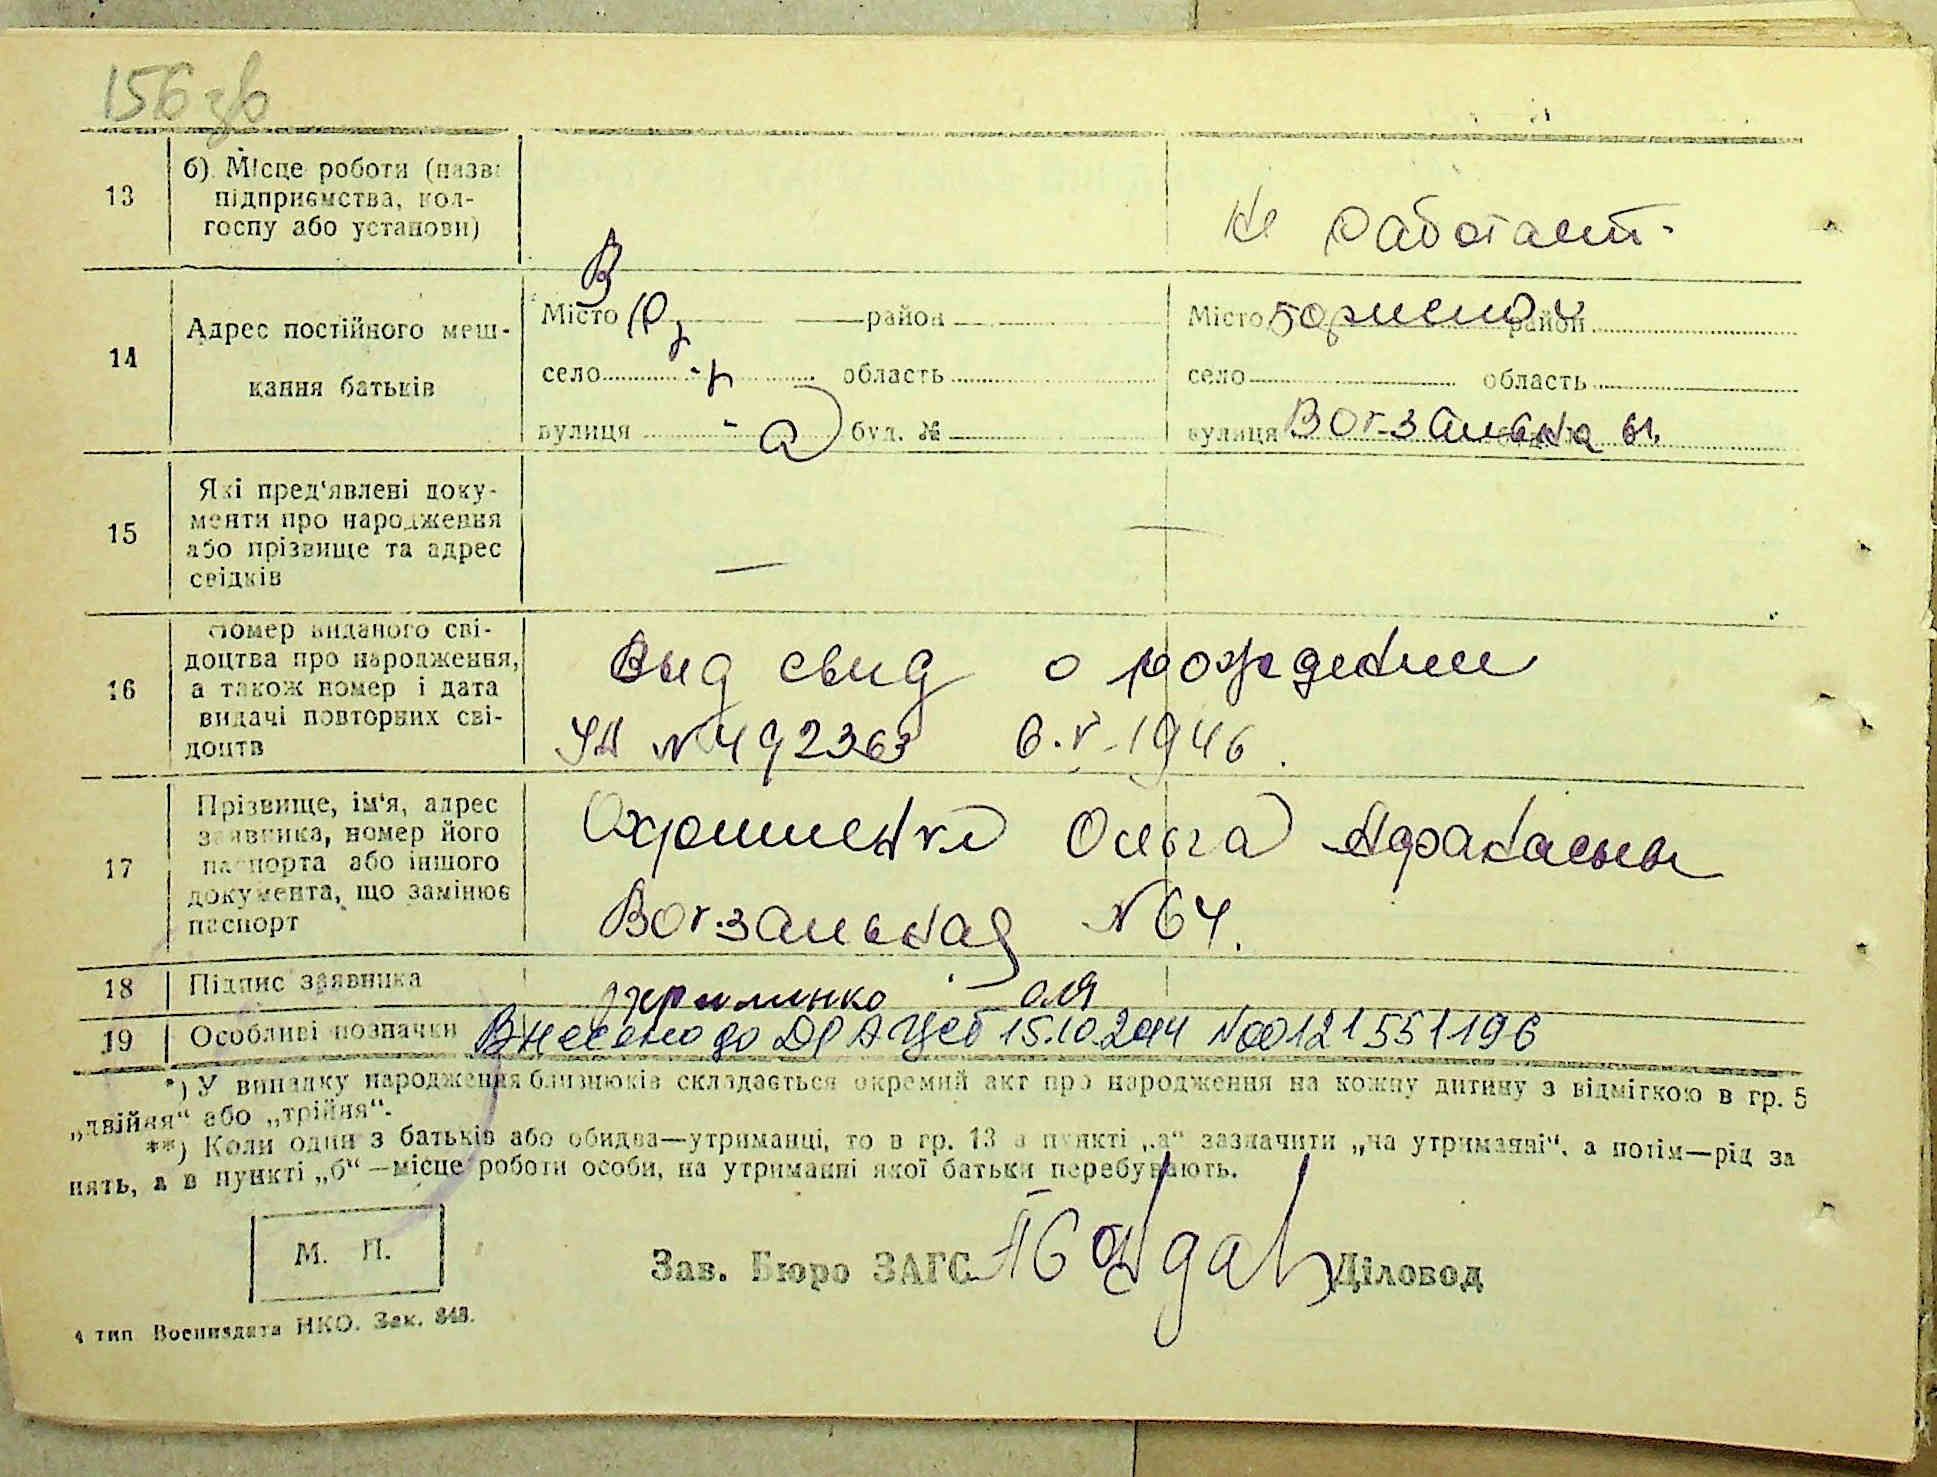 156 зв
13
б) Місце роботи (назва
підприємства, кол-
госпу або установи)
Не работает.
14
Адрес постійного меш-
кання батьків
Місто район
село область
вулиця буд. №
Місто район
село область
вулиця Вокзальна 64.
15
Які пред'явлені доку-
менти про народження
або прізвище та адрес
свідків
—
—
16
Номер виданого сві-
доцтва про народження,
а також номер і дата
видачі повторних сві-
доцтв
Выд свид о рождении
УА № 492363 6.V.1946.
17
Прізвище, ім'я, адрес
заявника, номер його
паспорта або іншого
документа, що замінює
паспорт
Охрименко Ольга
Вокзальная № 64.
18
Підпис заявника
Охрименко Оля
19
Особливі позначки
Внесено до ДРАЦСГ 15.10.2014 №00121551196
*) У випадку народження близнюків складається окремий акт про народження на кожну дитину з відміткою в гр. 5
„двійня“ або „трійня“.
**) Коли один з батьків або обидва—утриманці, то в гр. 13 в пункті „а“ зазначити „на утриманні“, а потім—рід за
нять, а в пункті „б“ —місце роботи особи, на утриманні якої батьки перебувають.
М. П.
Зав. Бюро ЗАГС
Діловод
4 тип Воениздата НКО. Зак. 848.